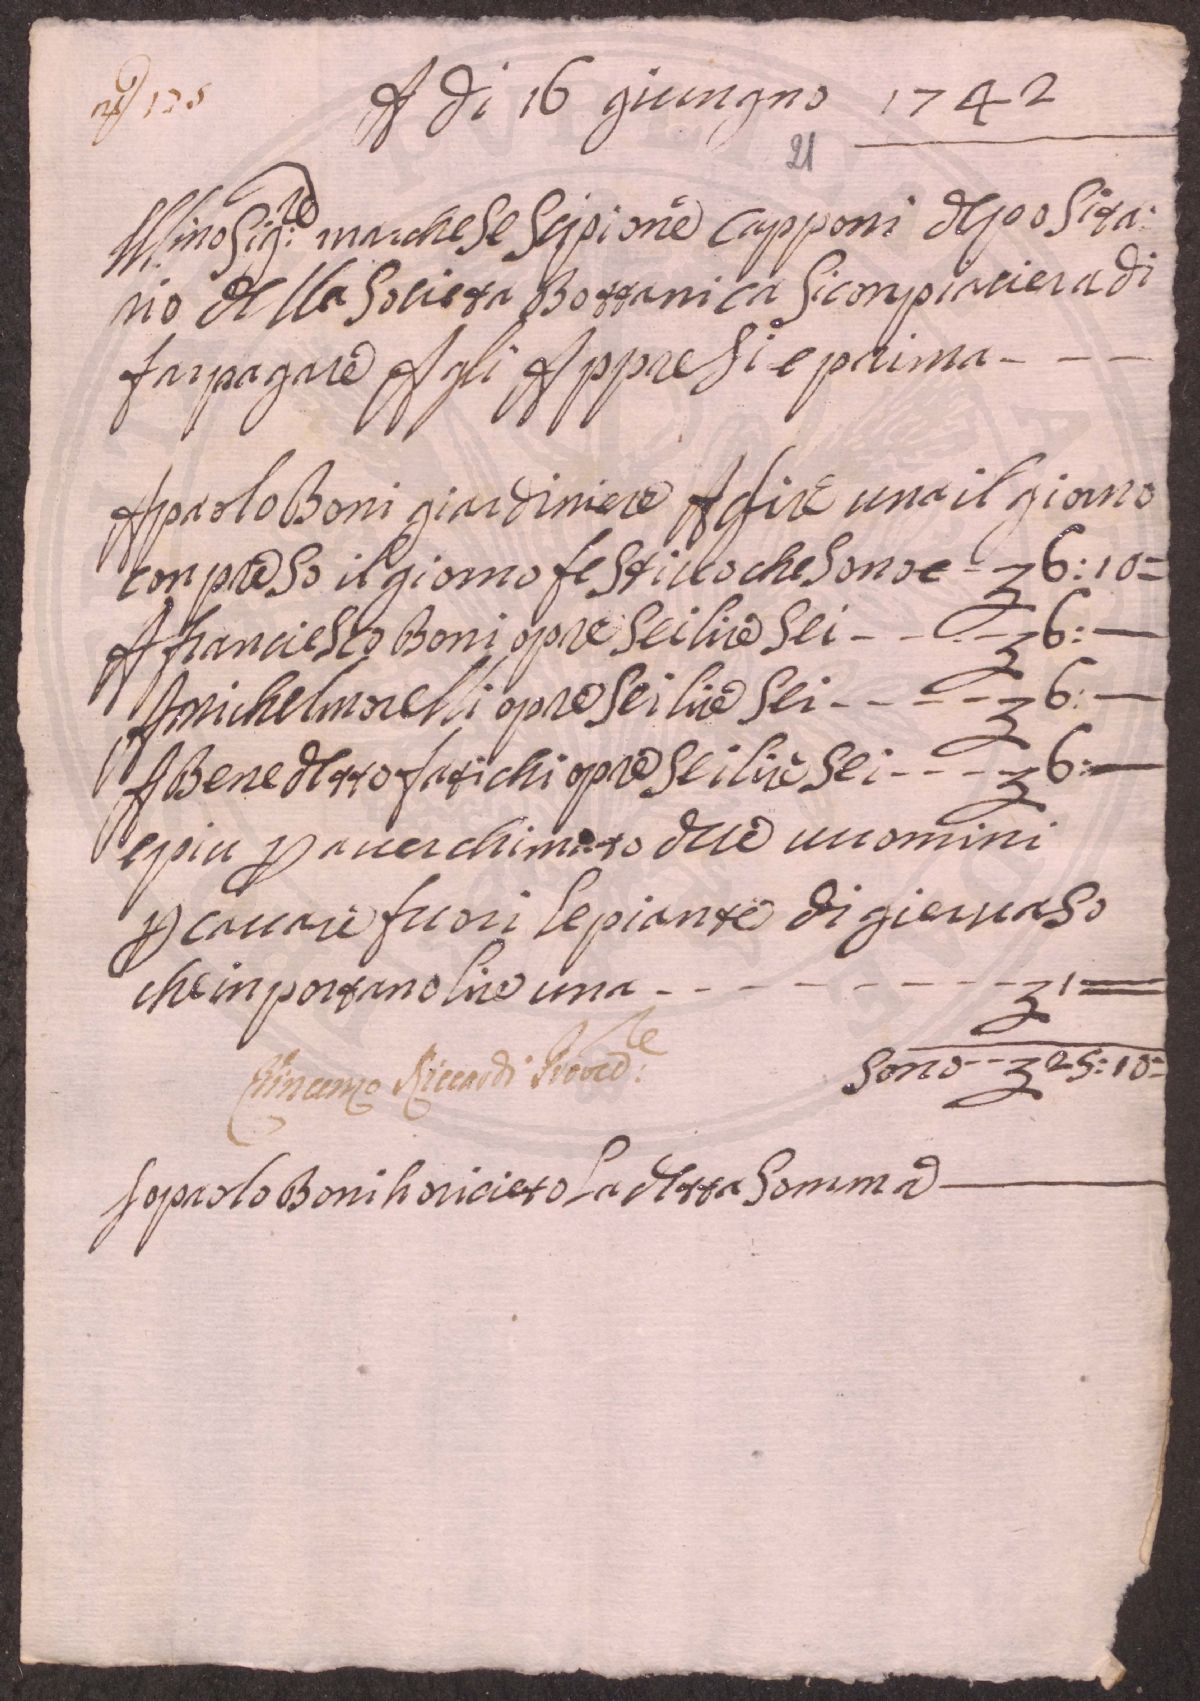 n.° 125
A di 16 giungno 1742
21
Ill:mo Sig:re marchese Scipione Capponi deposita:
rio della Societa Bottanica Si conpiaciera di
far pagare A gli Appresi e prima - - -
A paolo Boni giardiniere A lire una il giorno
conpreso il giorno festiuo che sono e - £ 6:10=
A franciesco Boni opre sei lire sei - - - - £ 6: —
A michel morelli opre sei lire sei - - - - £ 6: —
A Benedetto fatichi opre sei lire sei - - - - £ 6: —
e piu p auer chimato due uuomini
p cauare fuori le piante di gieruaso
che inportano lire una - - - - - - - - £ 1 =
Sono - - £ 25:10=
Vincenzo Riccardi Provre:
Io paolo Boni ho riceuto La detta Somma —